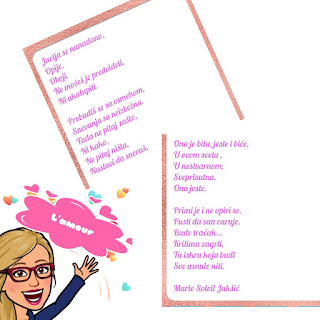 Javlja se nenadano,
Opije,
Oboji,
Ne možeš je predvideti,
Ni ukalupiti.
Probudiš se sa osmehom,
Snevanja su neizbežna.
Tada ne pitaj zašto,
Ni kako,
Ne pitaj ništa,
Nastavi da snevaš,
Ona je bila, jeste i biće,
U ovom svetu,
U nestvarnom,
Sveprisutna,
Ona jeste.
Primi je i ne opiri se,
Pusti da san caruje,
Bude tračak...
Krilima zagrli,
Tu iskru koja budi
Sve usnule niti.
Marie Soleil Jakšić
L'amour